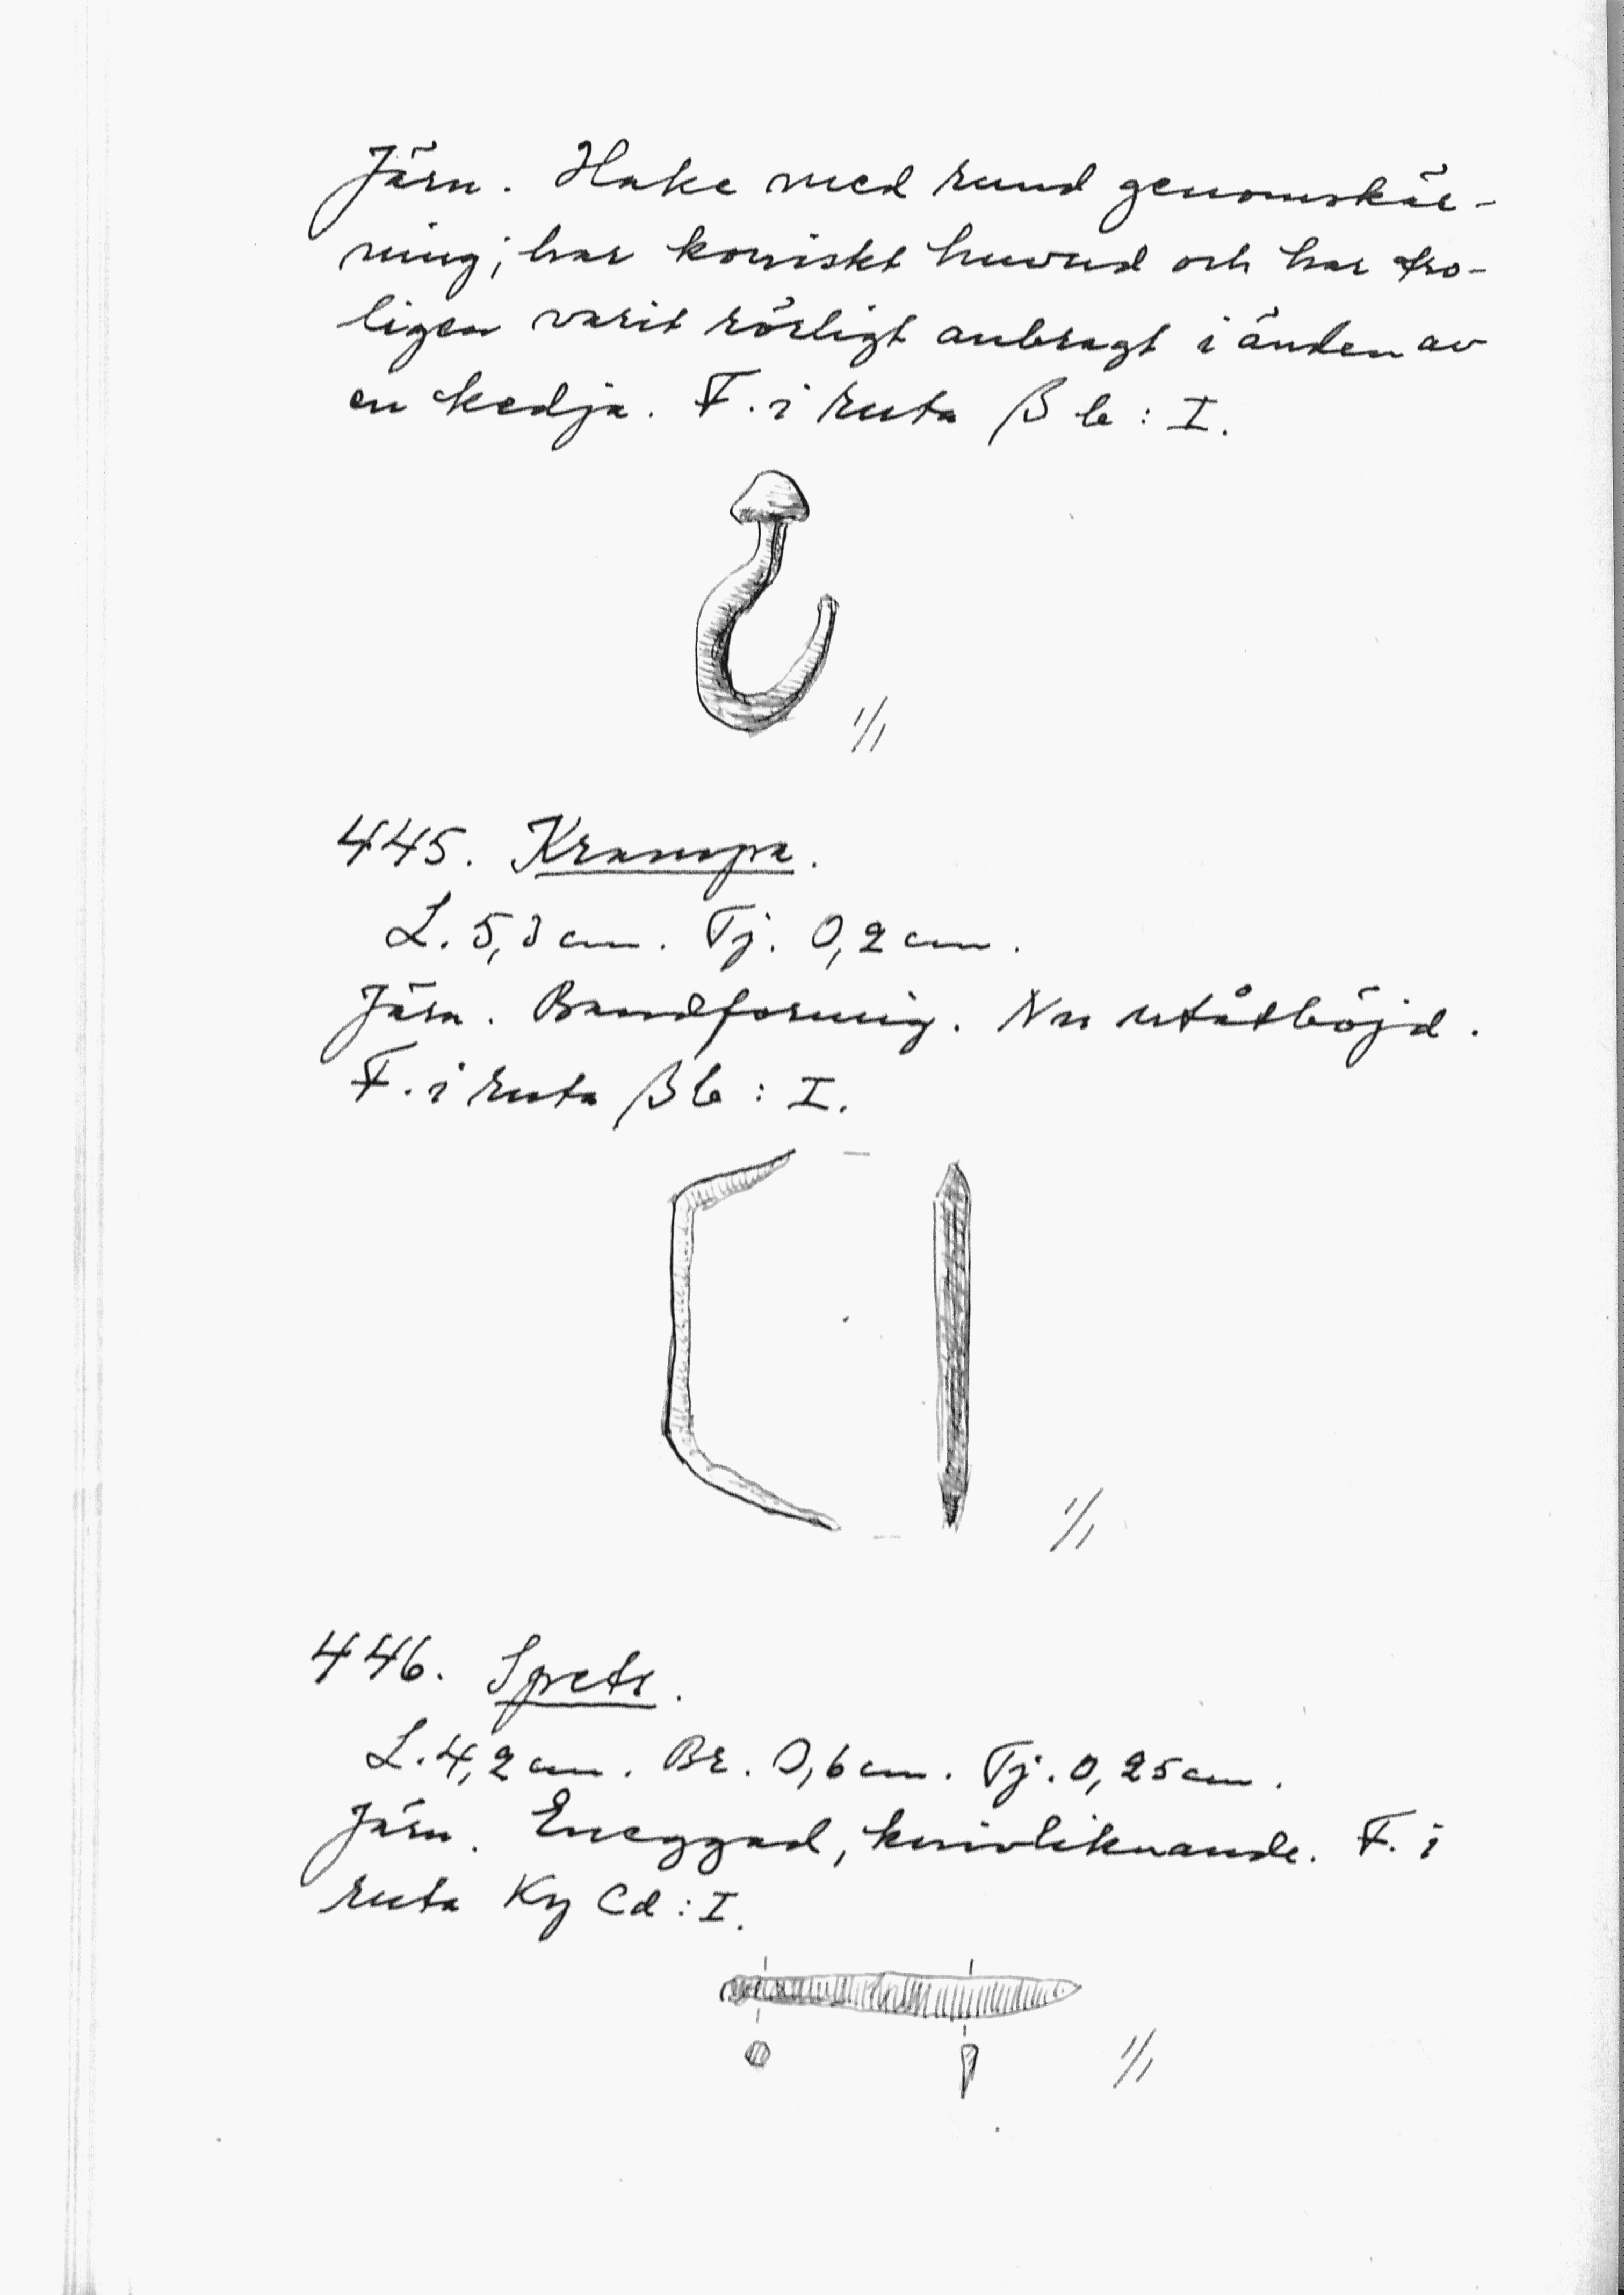 Järn. Hake med rund genomskär-
ning; har koniskt huvud och har tro-
ligen varit rörligt anbragt i änden av
en kedja. F. i ruta β b : I.
1/1
445. Krampa.
L. 5,3 cm. Tj. 0,2 cm.
Järn. Bandformig. Nu utåtböjd.
F. i ruta β b : I.
1/1
446. Spets.
L. 4,2 cm. Br. 0,6 cm. Tj. 0,25 cm.
Järn. Eneggad, knivliknande. F. i
ruta Ky Cd : I.
1/1